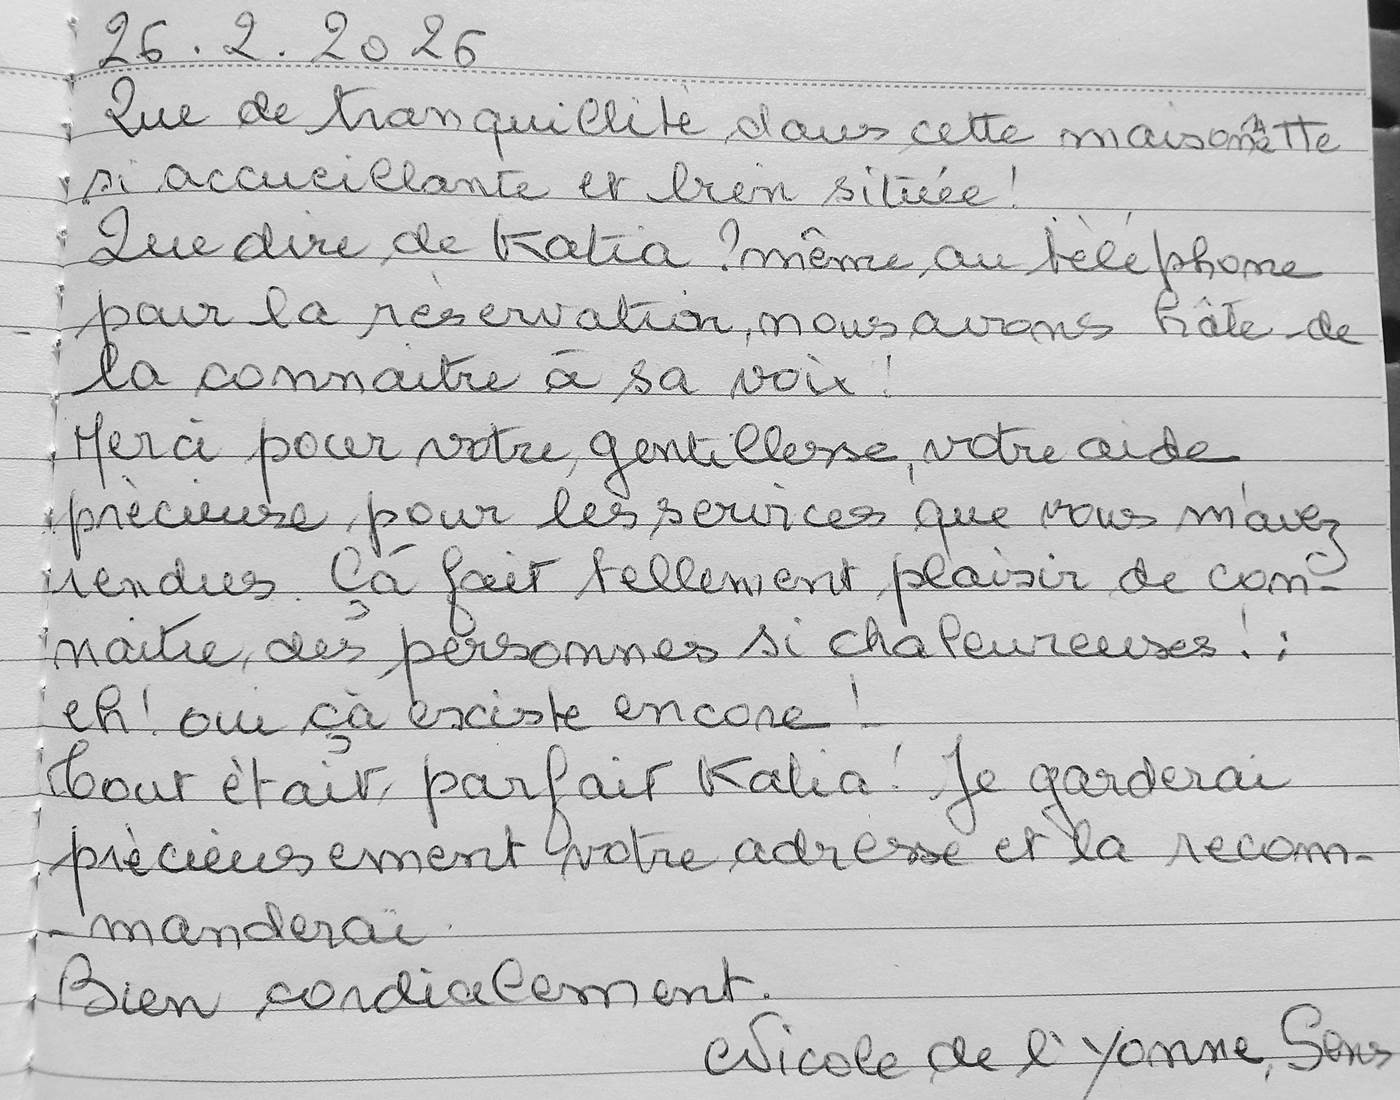 26.2.2026
Que de tranquillité dans cette maisonètte
si accueillante et bien située!
Que dire de Katia? même au télèphone
pour la réservation, nous avons hâte de
la connaitre à sa voix!
Merci pour votre gentillesse, votre aide
précieuse pour les services que vous m'avez
rendus. Çà fait tellement plaisir de con-
naitre des personnes si chaleureuses!;
eh! oui çà existe encore!
Tout ètait parfait Katia! Je garderai
prècieusement votre adresse et la recom-
-manderai.
Bien cordialement.
Nicole de l'Yonne, Sens